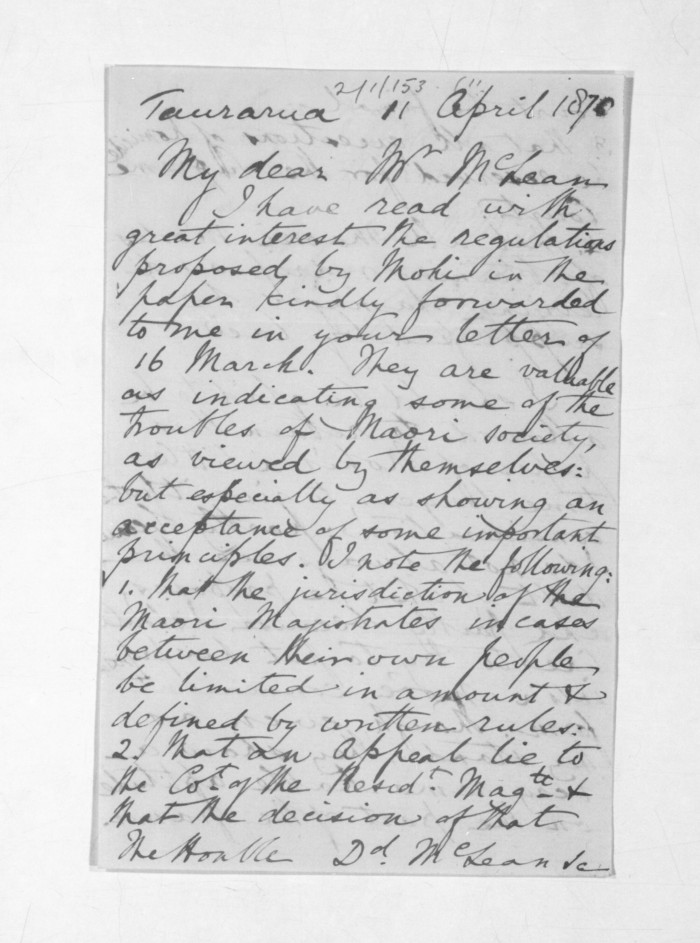 2/1/153
Taurarua 11 April 1870
My dear Mr McLean
I have read with
great interest the regulations
proposed by Mohi in the
paper kindly forwarded
to me in your letter of
16 March. They are valuable
as indicating some of the
troubles of Maori society,
as viewed by themselves:
but especially as showing an
acceptance of some important
principles. I note the following:
1. That the jurisdiction of the
Maori Magistrates in cases
between their own people
be limited in amount &
defined by written rules:
2. That an Appeal lie to
the Cot. of the Residt. Magte &
that the decision of that
The Honble Dd. McLean &c